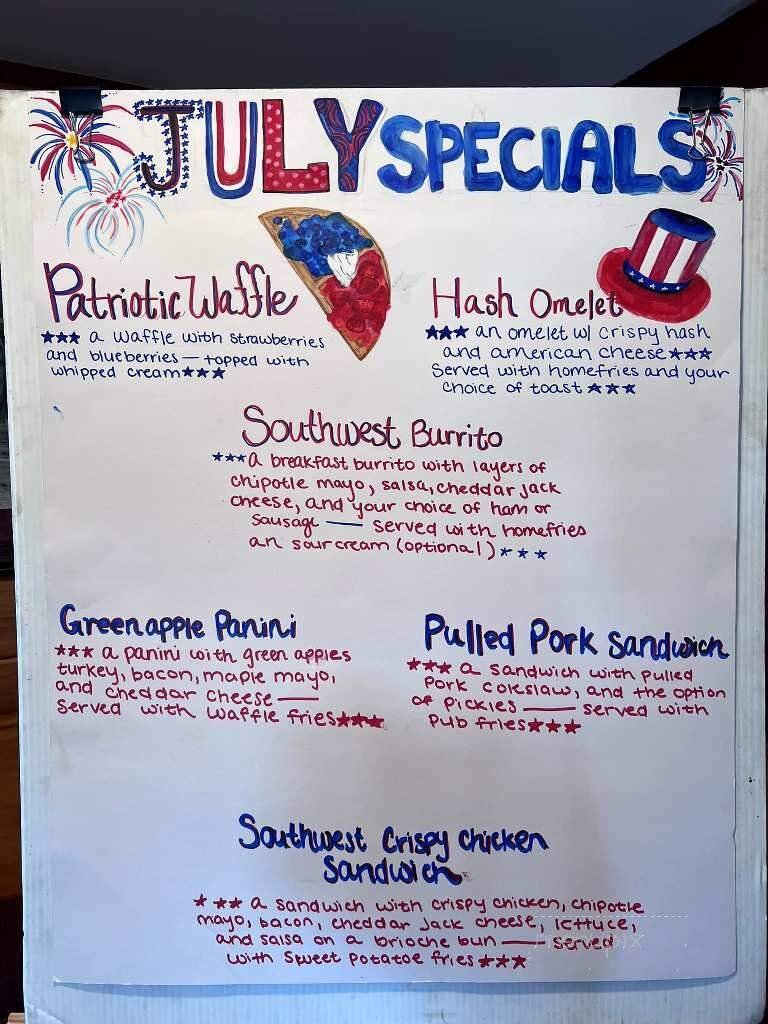 JULY SPECIALS
Patriotic Waffle
*** a waffle with strawberries
and blueberries — topped with
whipped cream ***
Hash Omelet
*** an omelet w/ crispy hash
and american cheese ***
Served with homefries and your
choice of toast ***
Southwest Burrito
*** a breakfast burrito with layers of
chipotle mayo, salsa, cheddar jack
cheese, and your choice of ham or
sausage — served with homefries
an sour cream (optional) ***
Green apple Panini
*** a panini with green apples
turkey, bacon, maple mayo,
and cheddar cheese —
served with waffle fries ***
Pulled Pork Sandwich
*** a sandwich with pulled
pork coleslaw, and the option
of pickles — served with
pub fries ***
Southwest Crispy Chicken
Sandwich
*** a sandwich with crispy chicken, chipotle
mayo, bacon, cheddar jack cheese, lettuce,
and salsa on a brioche bun — served
with sweet potatoe fries ***